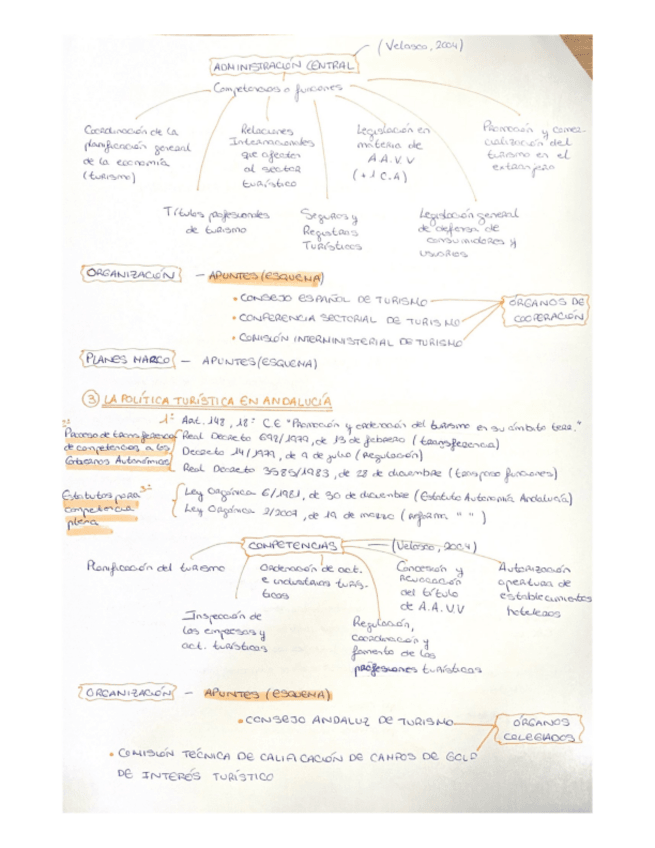 (Velasco, 2004)
ADMINISTRACIÓN CENTRAL
Competencias o funciones
Coordinación de la
planificación general
de la economía
(turismo)
Relaciones
Internacionales
que afecten
al sector
turístico
Legislación en
materia de
AA.VV
(+ 1 C.A)
Promoción y comer-
cialización del
turismo en el
extranjero
Títulos profesionales
de turismo
Seguros y
Registros
Turísticos
Legislación general
de defensa de
consumidores y
usuarios
ORGANIZACIÓN – APUNTES (ESQUEMA)
• CONSEJO ESPAÑOL DE TURISMO
• CONFERENCIA SECTORIAL DE TURISMO
• COMISIÓN INTERMINISTERIAL DE TURISMO
ÓRGANOS DE
COOPERACIÓN
PLANES MARCO – APUNTES (ESQUEMA)
③ LA POLÍTICA TURÍSTICA EN ANDALUCÍA
1º Art. 148, 18º C.E "Promoción y ordenación del turismo en su ámbito terr."
Proceso de transferencia
de competencias a los
Gobiernos Autonómicos
Real Decreto 698/1979, de 13 de febrero (transferencia)
Decreto 14/1979, de 9 de julio (Regulación)
Real Decreto 3585/1983, de 28 de diciembre (traspaso funciones)
3º
Estatutos para
competencia
plena
Ley Orgánica 6/1981, de 30 de diciembre (Estatuto Autonomía Andalucía)
Ley Orgánica 2/2007, de 19 de marzo (reform. " " )
COMPETENCIAS – (Velasco, 2004)
Planificación del turismo
Ordenación de act.
e industrias turís-
ticas
Concesión y
revocación
del título
de A.A.V.V
Autorización
apertura de
establecimientos
hoteleros
Inspección de
las empresas y
act. turísticas
Regulación,
coordinación y
fomento de las
profesiones turísticas
ORGANIZACIÓN – APUNTES (ESQUEMA)
• CONSEJO ANDALUZ DE TURISMO
ÓRGANOS
COLEGIADOS
• COMISIÓN TÉCNICA DE CALIFICACIÓN DE CAMPOS DE GOLF
DE INTERÉS TURÍSTICO